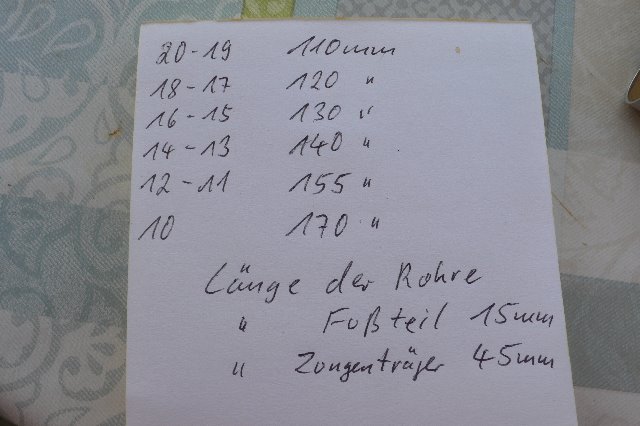 20-19 110mm
18-17 120 "
16-15 130 "
14-13 140 "
12-11 155 "
10 170 "
Länge der Rohre
" Fußteil 15mm
" Zungenträger 45mm